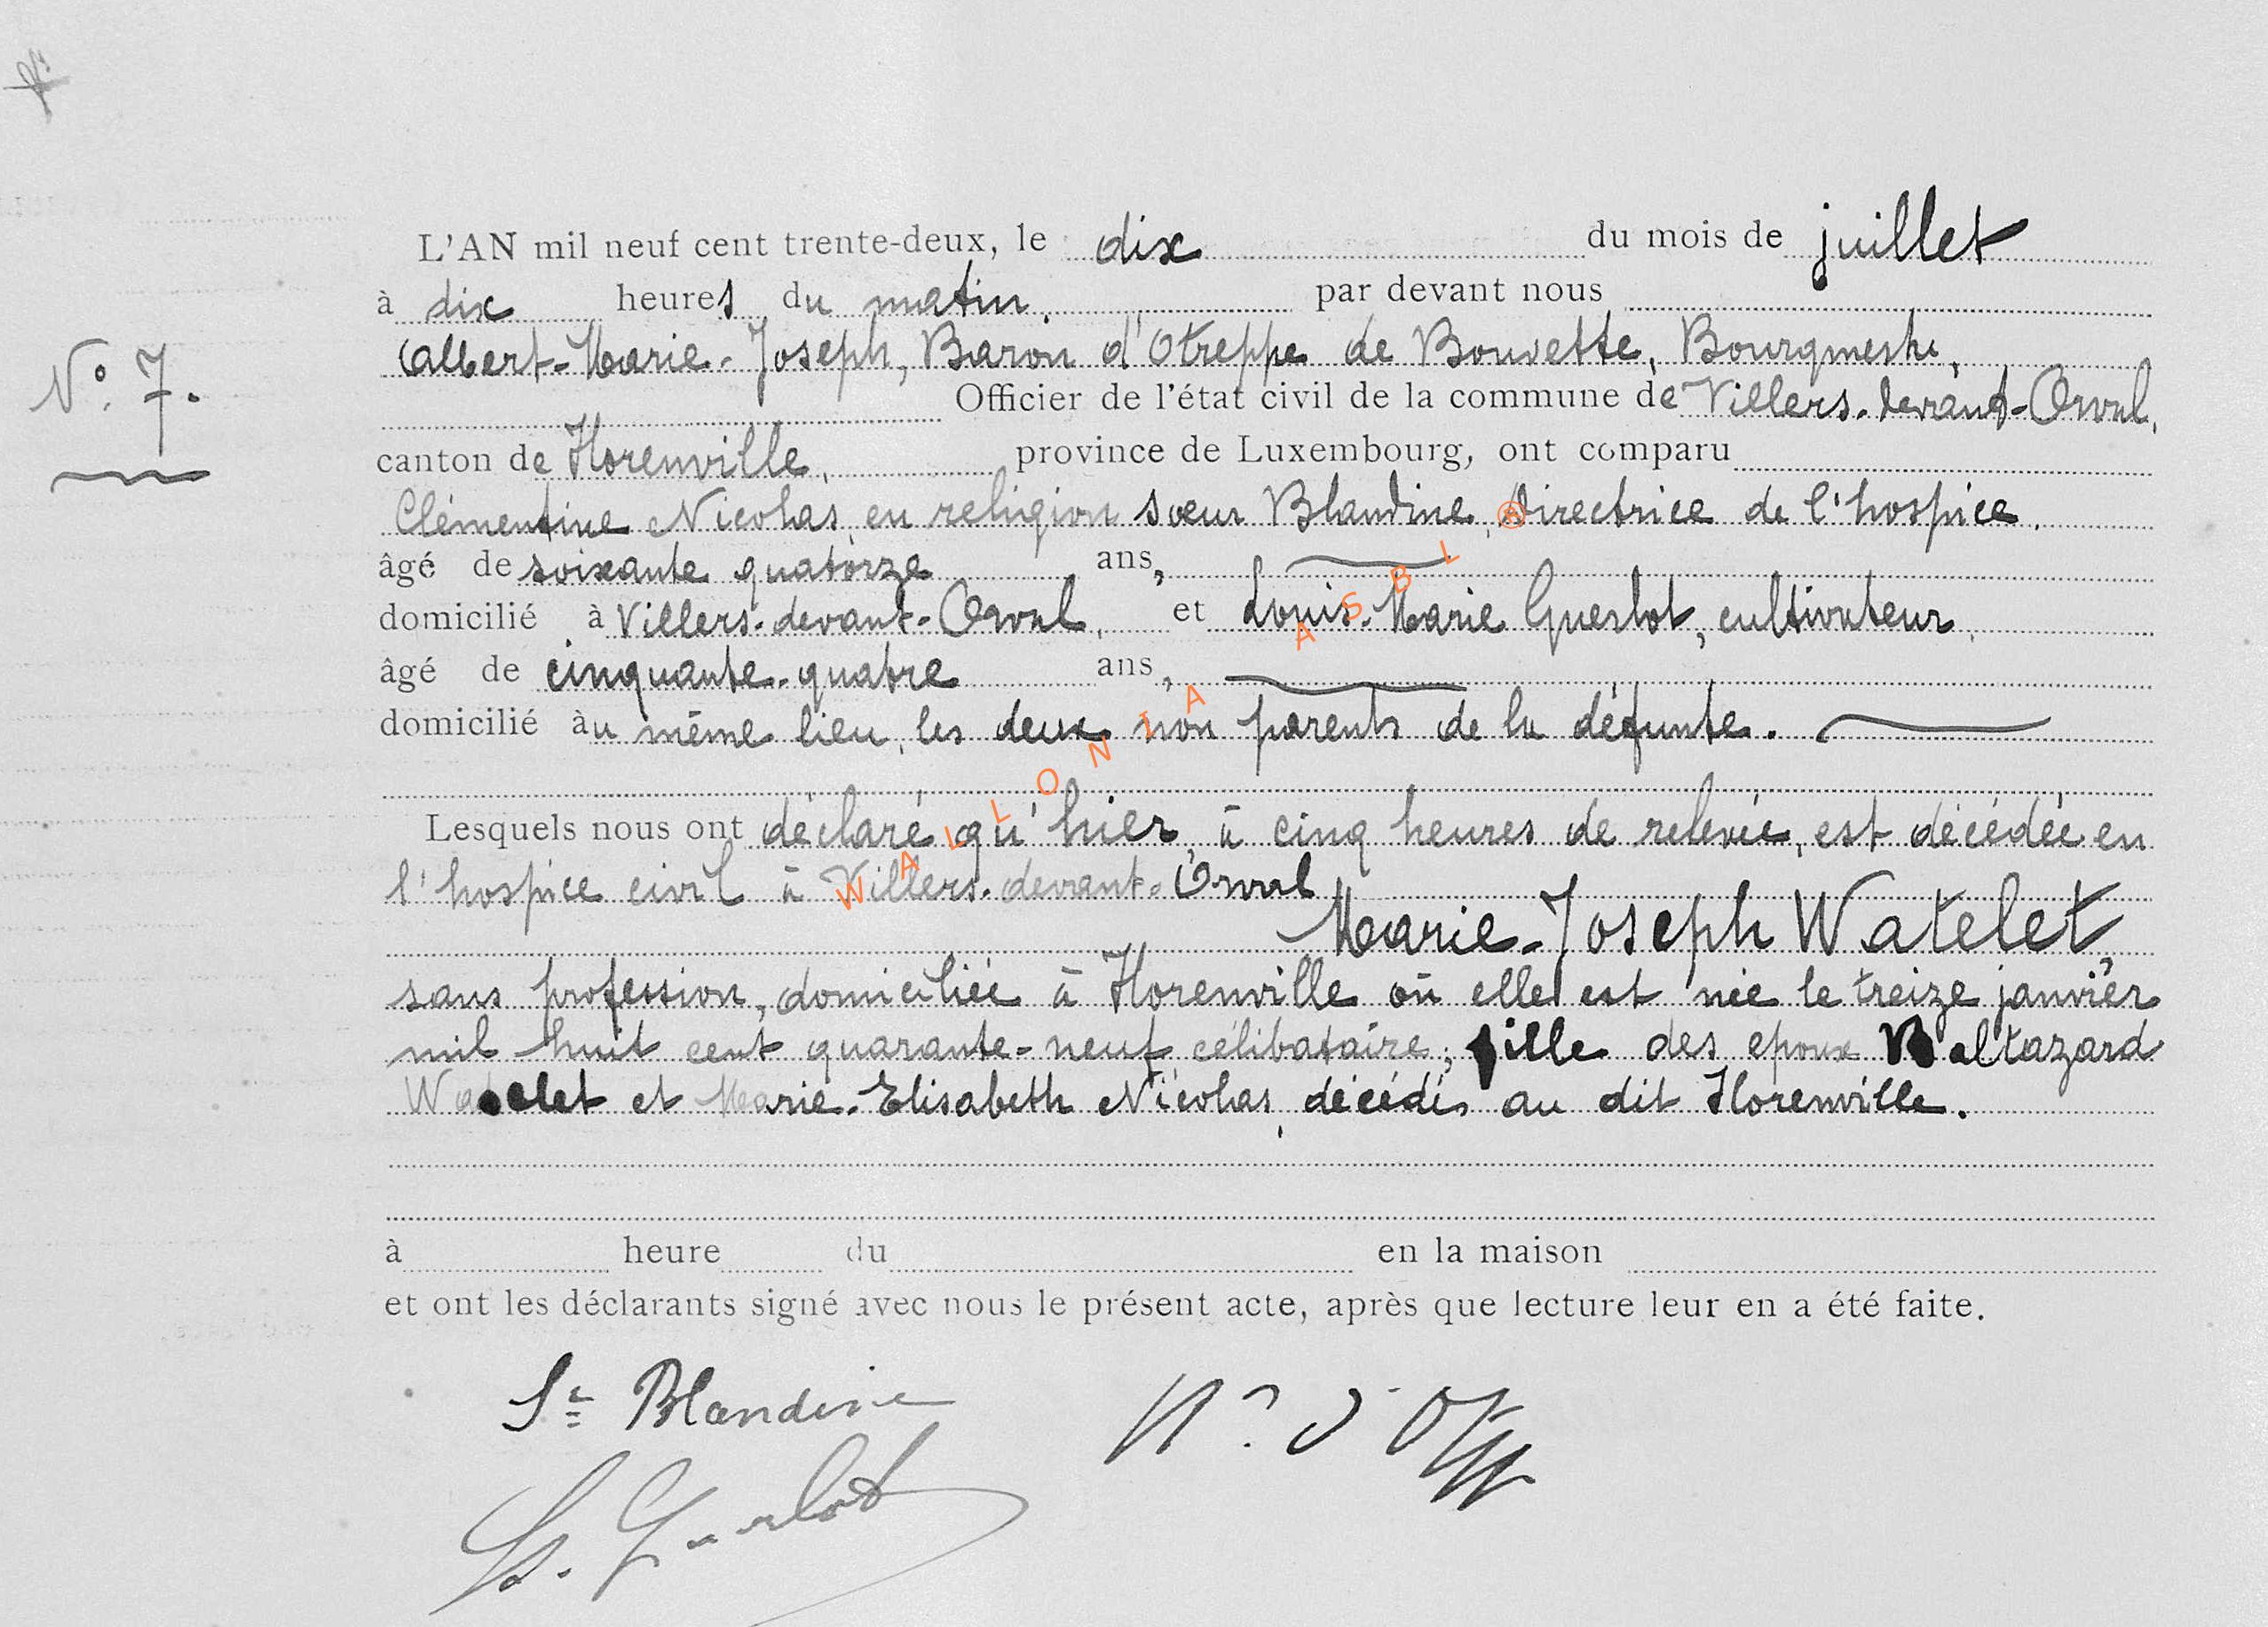 L'AN mil neuf cent trente-deux, le dix du mois de juillet
à dix heures du matin. par devant nous
Albert-Marie-Joseph, Baron d'Otreppe de Bouvette, Bourgmestre,
N° 7.
Officier de l'état civil de la commune de Villers-devant-Orval,
canton de Florenville, province de Luxembourg, ont comparu
Clémentine Nicolas, en religion sœur Blandine, Directrice de l'hospice,
âgé de soixante quatorze ans,
domicilié à Villers-devant-Orval, et Louis-Marie Guerlot, cultivateur,
âgé de cinquante-quatre ans,
domicilié àu même lieu, les deux non parents de la défunte.
Lesquels nous ont déclaré qu'hier, à cinq heures de relevée, est décédée en
l'hospice civil à Villers-devant-Orval
Marie-Joseph Watelet,
sans profession, domiciliée à Florenville où elle est née le treize janvier
mil huit cent quarante-neuf célibataire, fille des epoux Baltazard
Watelet et Marie-Elisabeth Nicolas, décédés au dit Florenville.
à heure du en la maison
et ont les déclarants signé avec nous le présent acte, après que lecture leur en a été faite.
Sr Blandine
L. Guerlot
WALLONIA ASBL ®